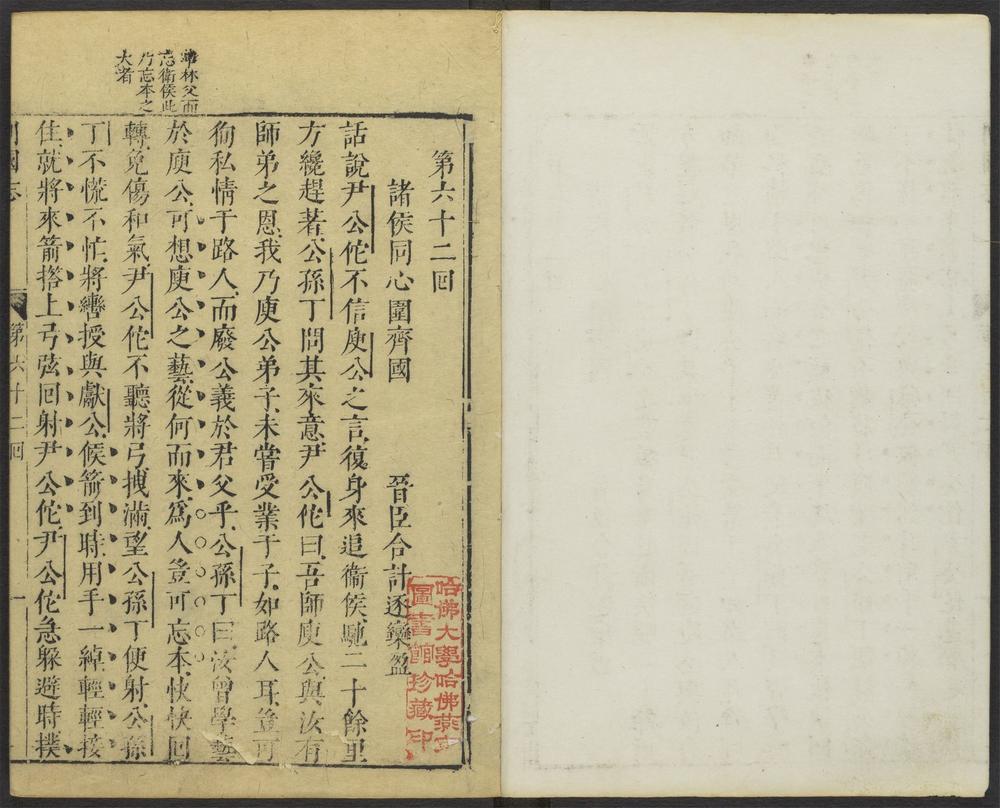 第六十二回
諸侯同心圍齊國 晉臣合計逐欒盈
話說尹公佗不信庾公之言復身來追衞侯馳二十餘里
方纔趕著公孫丁問其來意尹公佗曰吾師庾公與汝有
師弟之恩我乃庾公弟子未嘗受業于子如路人耳豈可
徇私情于路人而廢公義於君父乎公孫丁曰汝曾學藝
於庾公可想庾公之藝從何而來爲人豈可忘本快快回
轉免傷和氣尹公佗不聽將弓拽滿望公孫丁便射公孫
丁不慌不忙將轡授與獻公候箭到時用手一綽輕輕接
住就將來箭搭上弓弦回射尹公佗尹公佗急躲避時撲
林父而
忘衛侯此
乃忘本之
大者
國志 第六十二回 一
哈佛大學哈佛燕京
圖書館珍藏印